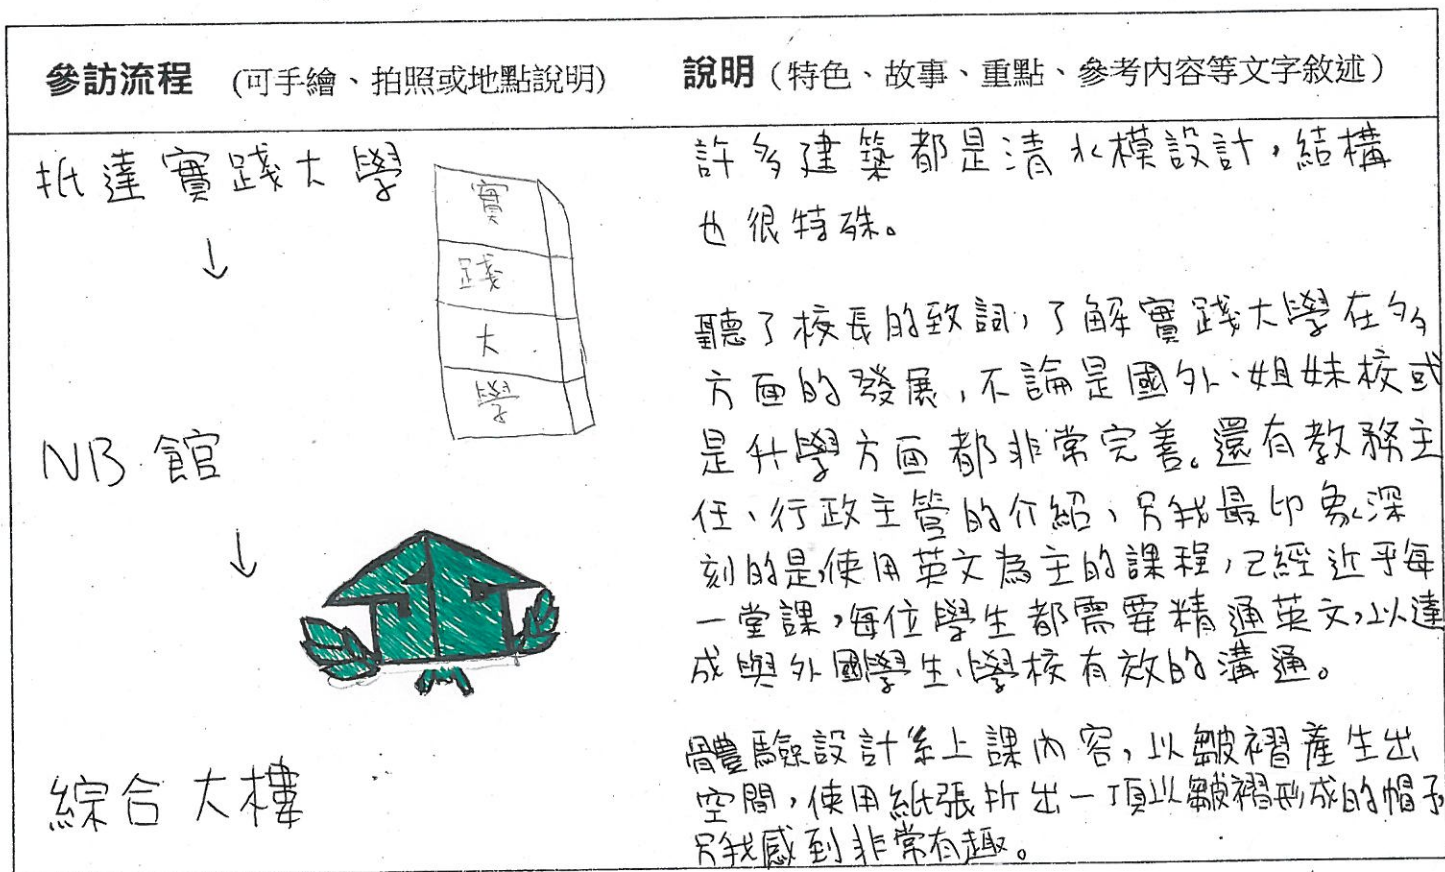 參訪流程 (可手繪、拍照或地點說明)
說明(特色、故事、重點、參考內容等文字敘述)
抵達實踐大學
↓
實
踐
大
學
NB館
↓
綜合大樓
許多建築都是清水模設計,結構
也很特殊。
聽了校長的致詞,了解實踐大學在多
方面的發展,不論是國外、姐妹校或
是升學方面都非常完善。還有教務主
任、行政主管的介紹、另我最印象深
刻的是,使用英文為主的課程,已經近乎每
一堂課,每位學生都需要精通英文,以達
成與外國學生、學校有效的溝通。
體驗設計系上課內容,以皺褶產生出
空間,使用紙張折出一頂以皺褶形成的帽子
另我感到非常有趣。